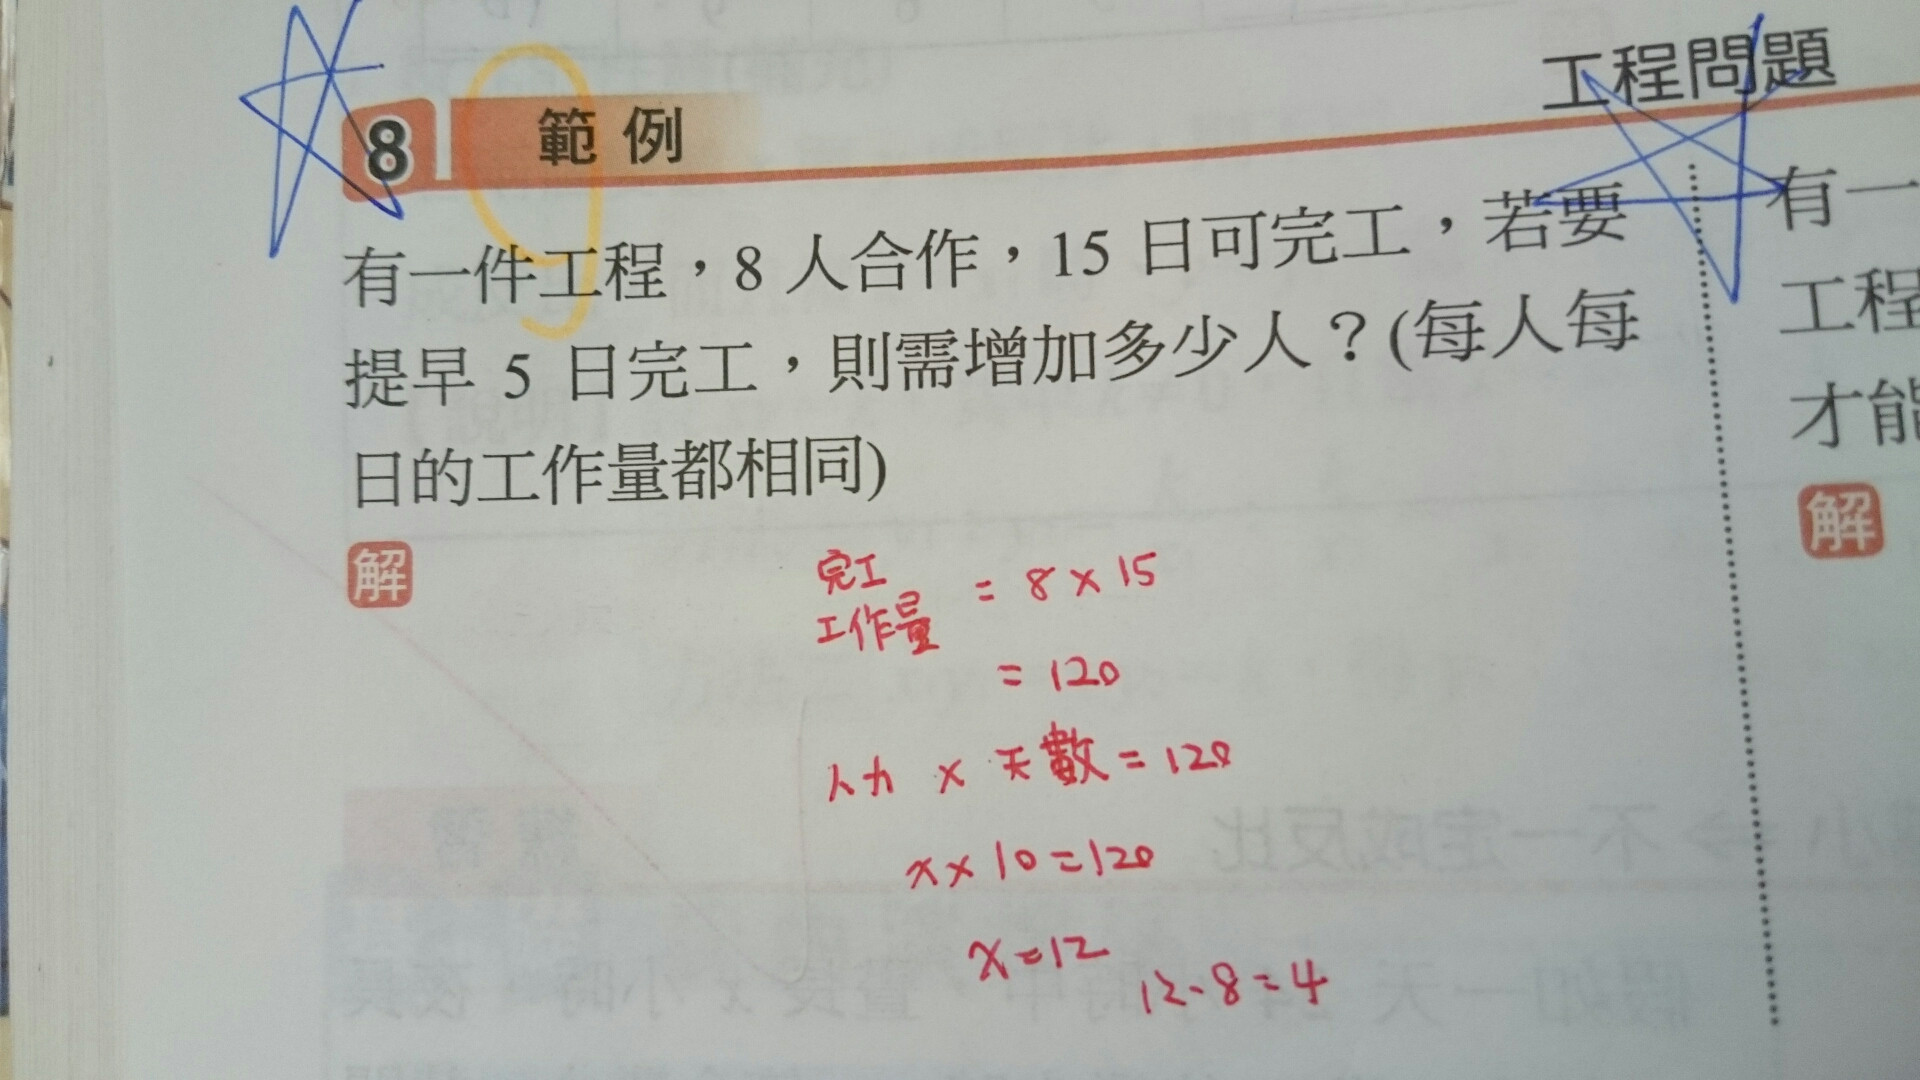 工程問題
8 範例
有一件工程，8 人合作，15 日可完工，若要
提早 5 日完工，則需增加多少人？(每人每
日的工作量都相同)
解
完工
工作量 = 8 × 15
= 120
人力 × 天數 = 120
x × 10 = 120
x = 12
12 - 8 = 4
有一
工程
才能
解